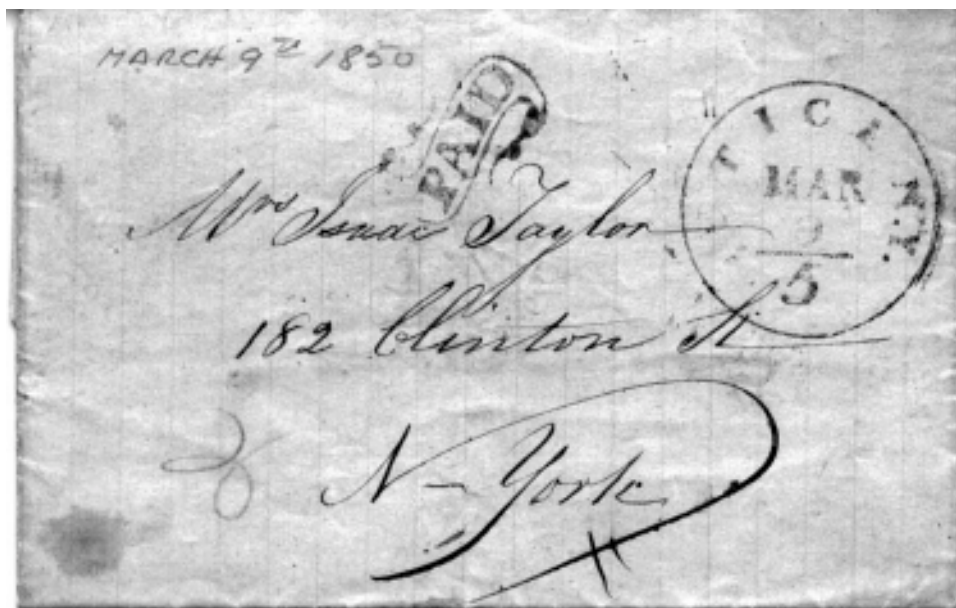 MARCH 9th 1850
PAID
TICA N.Y.
MAR
5
Mrs Isaac Taylor
182 Clinton St
N-York